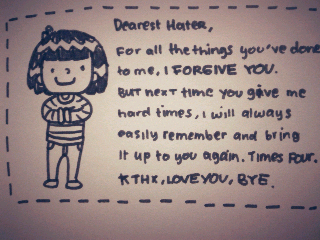 Dearest Hater,
For all the things you've done
to me, I FORGIVE YOU.
BUT next time you gave me
hard times, I will always
easily remember and bring
it up to you again. Times Four.
KTHX, LOVE YOU, BYE.